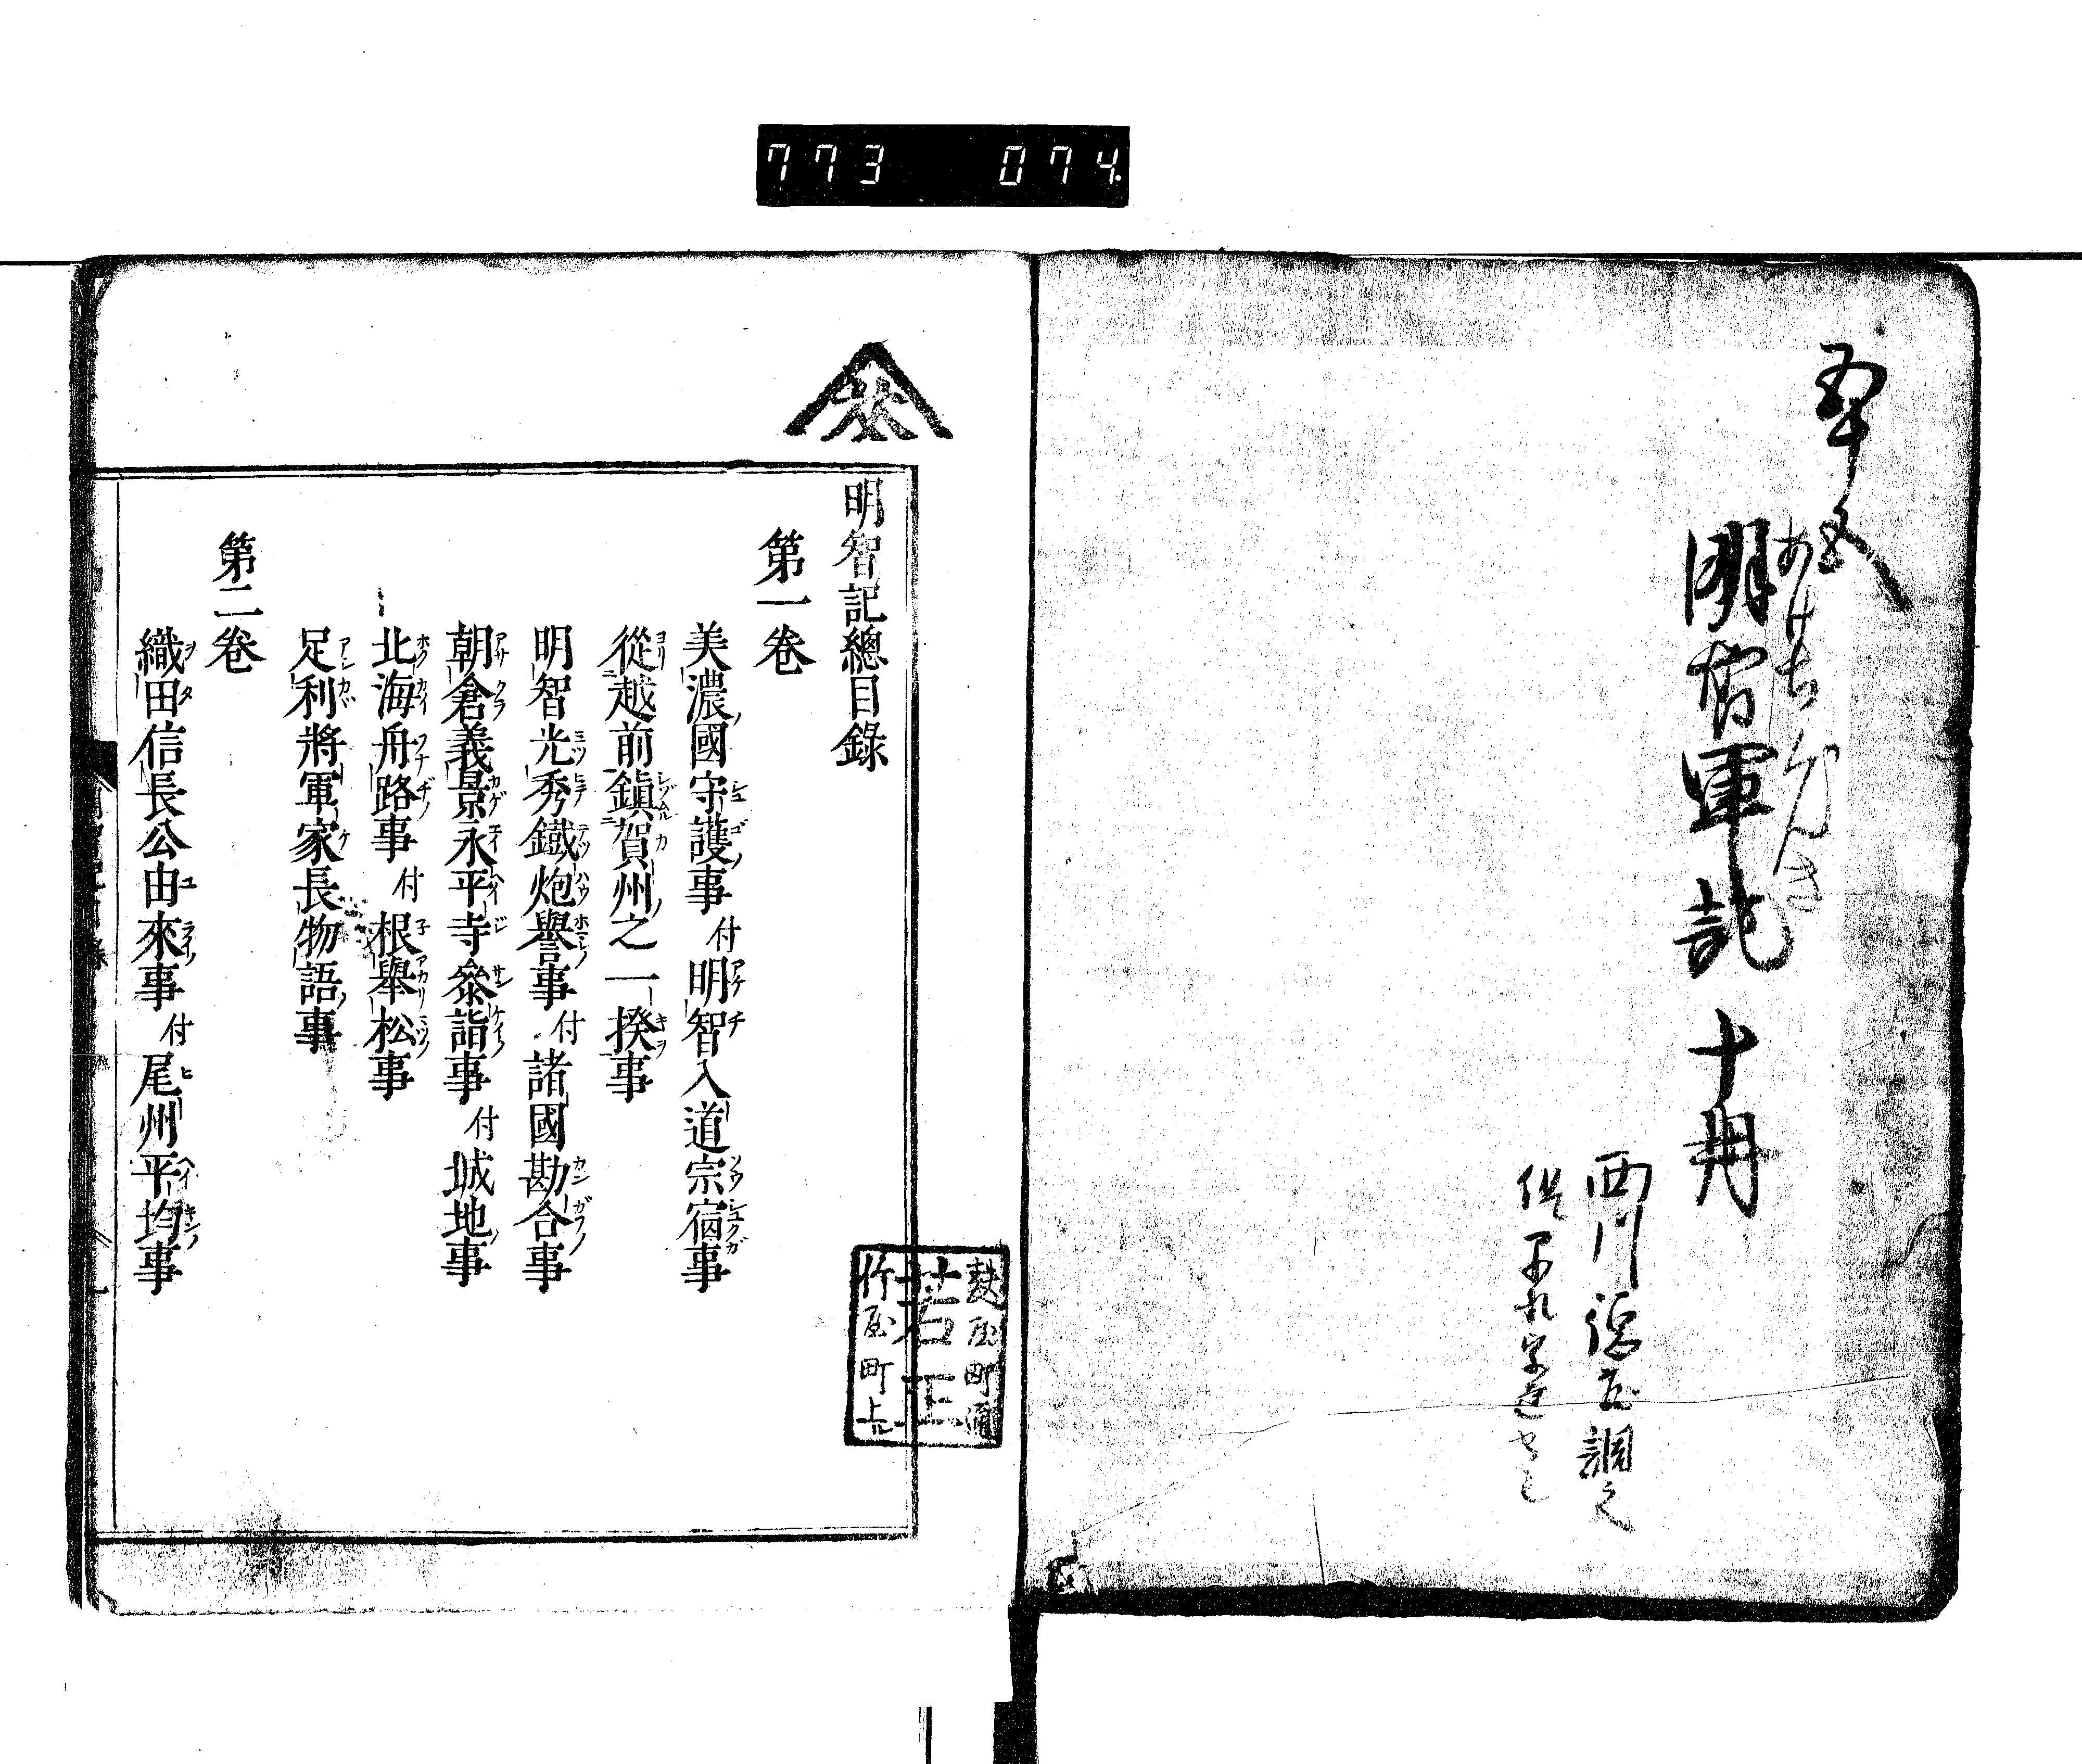 773 074
五十五
あけちぐんき
明智軍記 十冊
西川
調之
明智記總目錄
第一巻
美濃國守護事 付 明智入道宗宿事
從越前鎮賀州之一揆事
明智光秀鐵炮譽事 付 諸國勘合事
朝倉義景永平寺參詣事 付 城地事
北海舟路事 付 根舉松事
足利將軍家長物語事
第二巻
織田信長公由來事 付 尾州平均事
麩屋町通
若正
竹屋町上ル